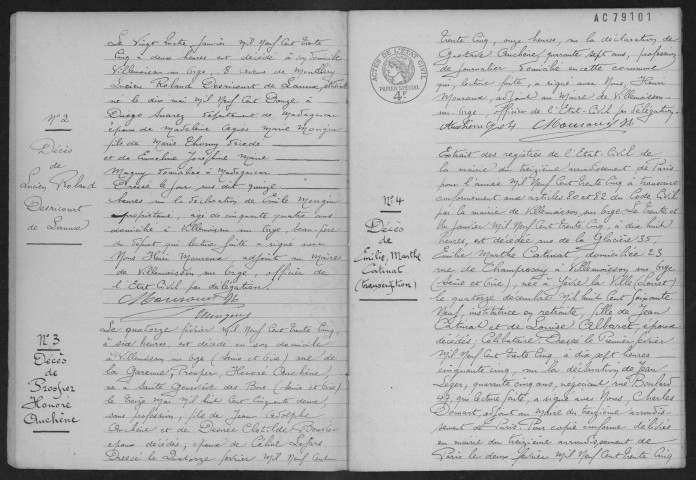 N° 2
Décès
de
Lucien Roland
Desricourt
de Lanux
Le Vingt quatre janvier mil neuf cent trente
Cinq à deux heures est décédé à son domicile
Villemoisson sur Orge, 8 avenue de Montlhéry
Lucien Roland Desricourt de Lanux,
né le dix mai mil neuf cent douze à
Diego Suarez département de Madagascar
époux de Madeleine Agnès Marie Mougin
fils de Marie
et de Joséphine Marie
domiciliés à Madagascar
Dressé le jour sus dit quinze
heures sur la déclaration de Emile Mougin
propriétaire, âgé de cinquante quatre ans
domicilié à Villemoisson sur Orge, beau-père
du défunt qui lecture faite a signé avec
Nous Henri Mouroux, adjoint au Maire
de Villemoisson sur Orge, officier de
l'Etat Civil par délégation.
Mougin
N° 3
Décès
de
Prosper
Honoré
Auchène
Le quatorze février mil neuf cent trente cinq,
à six heures, est décédé en son domicile
à Villemoisson sur Orge (Seine et Oise) rue de
la Garenne, Prosper, Honoré Auchène,
né à Sainte Geneviève des Bois (Seine et Oise)
le treize mai mil huit cent cinquante deux,
sans profession, fils de Jean
Auchène et de Désirée Clotilde
époux décédés, époux de Céline
Dressé le Quatorze février mil neuf cent
AC 79101
ACTES DE L'ÉTAT CIVIL
PAPIER SPÉCIAL
4F
trente cinq, onze heures, sur la déclaration de
Auchène quarante sept ans, profession
de journalier domicilié en cette commune
qui, lecture faite, a signé avec Nous, Henri
Mouroux, adjoint au Maire de Villemoisson
sur Orge, officier de l'Etat Civil par délégation.
N° 4
Décès
de
Emilie, Marthe
Catinat
(transcription)
Extrait des registres de l'Etat Civil de
la mairie du treizième arrondissement de Paris
pour l'année mil neuf cent trente cinq à transcrire
conformément aux articles 80 et 82 du Code Civil
par la mairie de Villemoisson sur Orge. Le trente et
un janvier mil neuf cent trente cinq, à dix huit
heures, est décédée rue de la Glacière 35,
Emilie Marthe Catinat domiciliée 23
rue de Champrosay à Villemoisson sur Orge
(Seine et Oise), née à Yèvre la Ville (Loiret)
le quatorze décembre mil huit cent soixante
neuf, institutrice en retraite, fille de Jean
Catinat et de Louise époux
décédés. Célibataire. Dressé le Premier février
mil neuf cent trente cinq à dix sept heures
cinquante cinq, sur la déclaration de Jean
Léger, quarante cinq ans, négociant rue Boulard
42, qui lecture faite, a signé avec Nous, Charles
adjoint au Maire du treizième arrondis-
sement de Paris. Pour copie conforme délivrée
en mairie du treizième arrondissement de
Paris le deux février mil neuf cent trente cinq